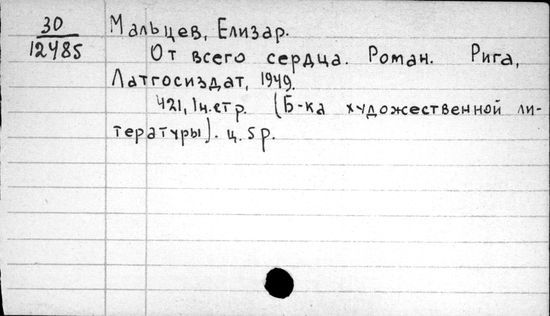 30
12485
Мальцев, Елизар.
От всего сердца. Роман. Рига,
Латгосиздат, 1949.
421, 1н.стр. (Б-ка художественной ли-
тературы). ц. 5 р.